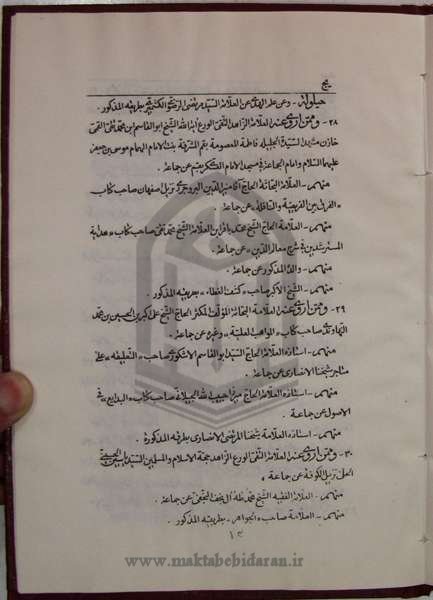 یج
حیلولة - وعن علم الهدی عن العلامة السید مرتضی الرضوی الکشمیری بطریقه المذکور .
۲۸ - وممن اروی عنه العلامة الزاهد التقی الورع آیة الله الشیخ ابوالقاسم بن محمد تقی القمی
خازن مشهد السیدة الجلیلة فاطمة المعصومة بقم المشرفة بنت الامام الهمام موسی بن جعفر
علیهما السلام وامام الجماعة فی مسجد الامام العسکری بقم عن جماعة .
منهم - العلامة البحاثة الحاج آقا منیرالدین البروجردی نزیل اصفهان صاحب کتاب
« الفرق بین الفریضة والنافلة » عن جماعة .
منهم - العلامة الحاج الشیخ محمد باقر ابن العلامة الشیخ محمد تقی صاحب کتاب « هدایة
المسترشدین فی شرح معالم الدین » عن جماعة .
منهم - والده المذکور عن جماعة .
منهم - الشیخ الاکبر صاحب « کشف الغطاء » بطریقه المذکور .
۲۹ - وممن اروی عنه العلامة البحاثة المؤلف المکثر الحاج الشیخ علی اکبر بن الحسین بن محمد
النهاوندی صاحب کتاب « المواهب العلیة » وغیره عن جماعة .
منهم - استاذه العلامة الحاج السید ابوالقاسم الاشکوری صاحب « التعلیقة » علی
متاجر شیخنا الانصاری عن جماعة .
منهم - استاذه العلامة الحاج میرزا حبیب الله الجیلانی صاحب کتاب « البدایع » فی
الاصول عن جماعة .
منهم - استاذه العلامة شیخنا المرتضی الانصاری بطرقه المذکورة .
۳۰ - وممن اروی عنه العلامة التقی الورع الزاهد حجة الاسلام والمسلمین السید یاسین الحسینی
الحلی نزیل الکوفة عن جماعة .
منهم - العلامة الفقیه الشیخ محمد طه آل نجف النجفی عن جماعة .
منهم - العلامة صاحب « الجواهر » بطریقه المذکور .
۱۳
www.maktabebidaran.ir